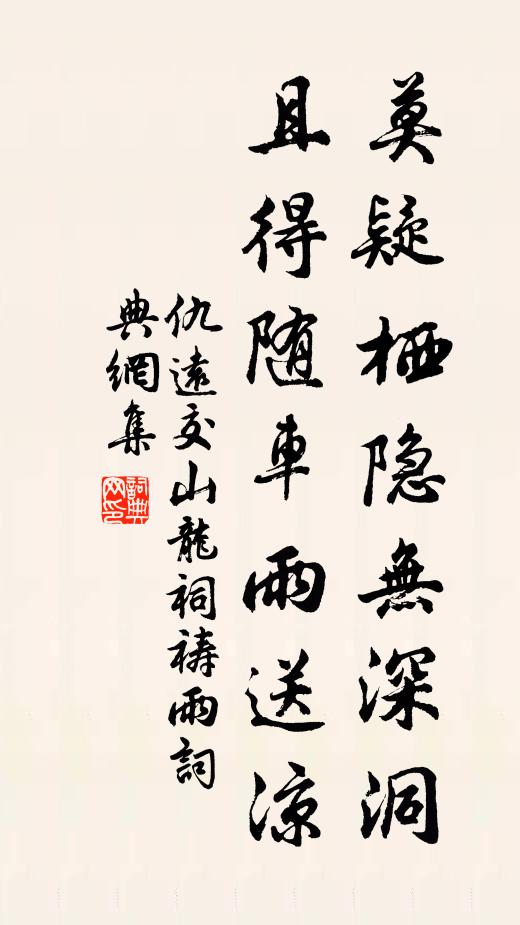 莫疑栖隐無深洞
且得随車雨送凉
仇遠交山龍祠祷雨詞
典網集
詞典
网印